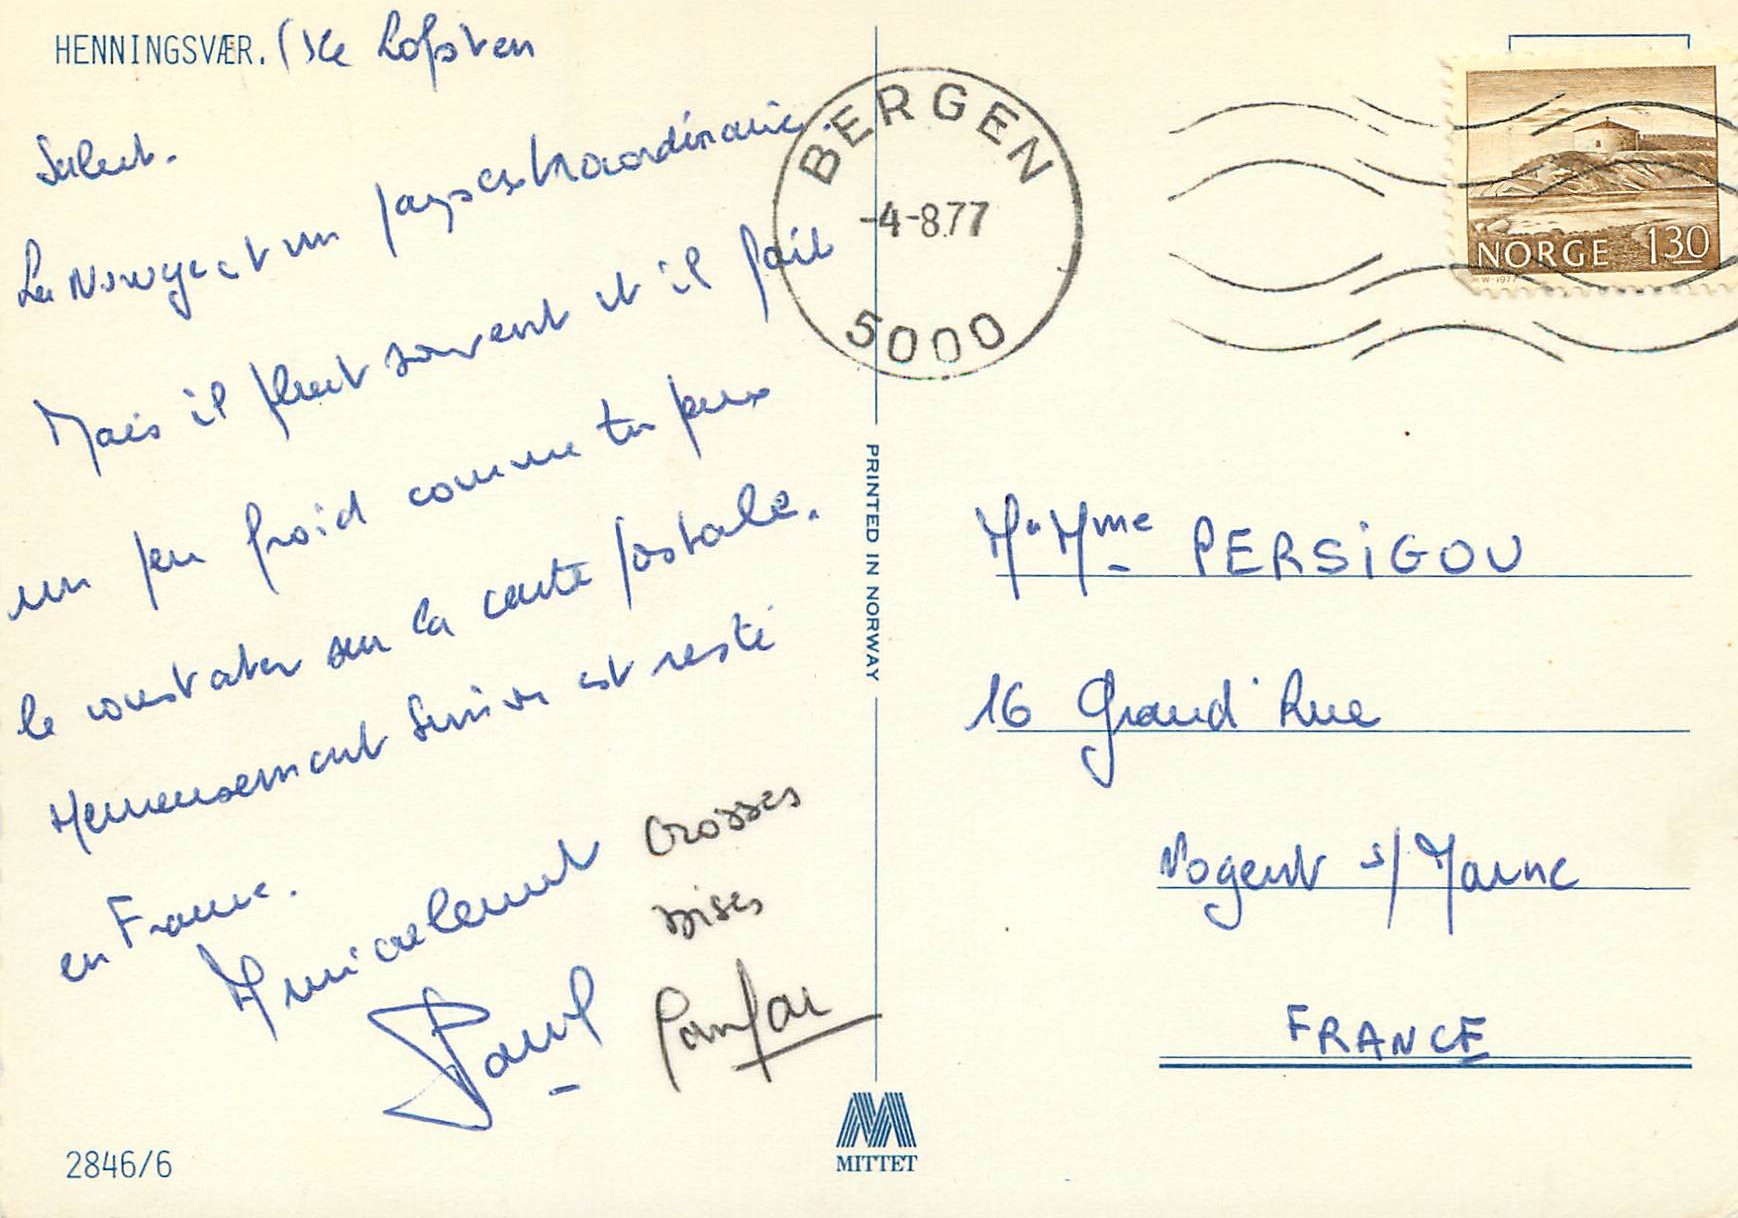 HENNINGSVÆR. (Ile Lofoten
Salut.
La Norvge est un pays extraordinaire.
Mais il pleut souvent et il fait
un peu froid comme tu peux
le constater sur la carte postale.
Heureusement est resté
en France.
Amicalement
Paul
Grosses
Bises
2846/6
PRINTED IN NORWAY
MITTET
BERGEN
-4-8.77
5000
NORGE 130
M. Mme PERSIGOU
16 Grand' Rue
Nogent s/Marne
FRANCE